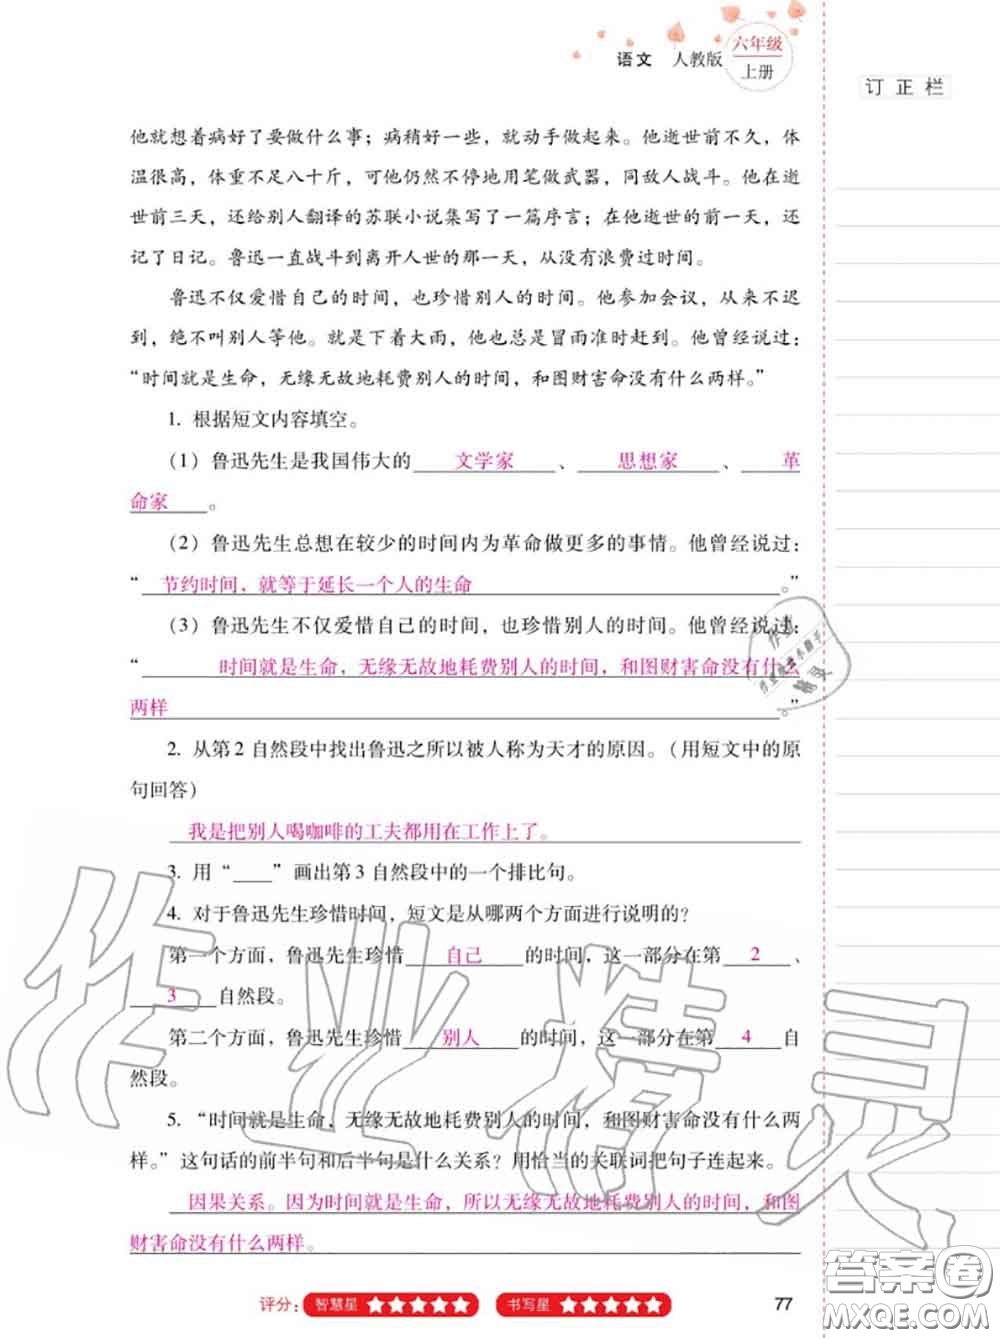 语文 人教版 六年级
上册
订正栏
他就想着病好了要做什么事；病稍好一些，就动手做起来。他逝世前不久，体
温很高，体重不足八十斤，可他仍然不停地用笔做武器，同敌人战斗。他在逝
世前三天，还给别人翻译的苏联小说集写了一篇序言；在他逝世的前一天，还
记了日记。鲁迅一直战斗到离开人世的那一天，从没有浪费过时间。
鲁迅不仅爱惜自己的时间，也珍惜别人的时间。他参加会议，从来不迟
到，绝不叫别人等他。就是下着大雨，他也总是冒雨准时赶到。他曾经说过：
“时间就是生命，无缘无故地耗费别人的时间，和图财害命没有什么两样。”
1. 根据短文内容填空。
（1）鲁迅先生是我国伟大的 文学家 、 思想家 、 革
命家 。
（2）鲁迅先生总想在较少的时间内为革命做更多的事情。他曾经说过：
“ 节约时间，就等于延长一个人的生命 。”
（3）鲁迅先生不仅爱惜自己的时间，也珍惜别人的时间。他曾经说过：
“ 时间就是生命，无缘无故地耗费别人的时间，和图财害命没有什么
两样 。”
2. 从第 2 自然段中找出鲁迅之所以被人称为天才的原因。（用短文中的原
句回答）
我是把别人喝咖啡的工夫都用在工作上了。
3. 用“____”画出第 3 自然段中的一个排比句。
4. 对于鲁迅先生珍惜时间，短文是从哪两个方面进行说明的？
第一个方面，鲁迅先生珍惜 自己 的时间，这一部分在第 2 、
3 自然段。
第二个方面，鲁迅先生珍惜 别人 的时间，这一部分在第 4 自
然段。
5. “时间就是生命，无缘无故地耗费别人的时间，和图财害命没有什么两
样。”这句话的前半句和后半句是什么关系？用恰当的关联词把句子连起来。
因果关系。因为时间就是生命，所以无缘无故地耗费别人的时间，和图
财害命没有什么两样。
评分： 智慧星 ★★★★★ 书写星 ★★★★★ 77
作业精灵
答案圈
MXQE.COM